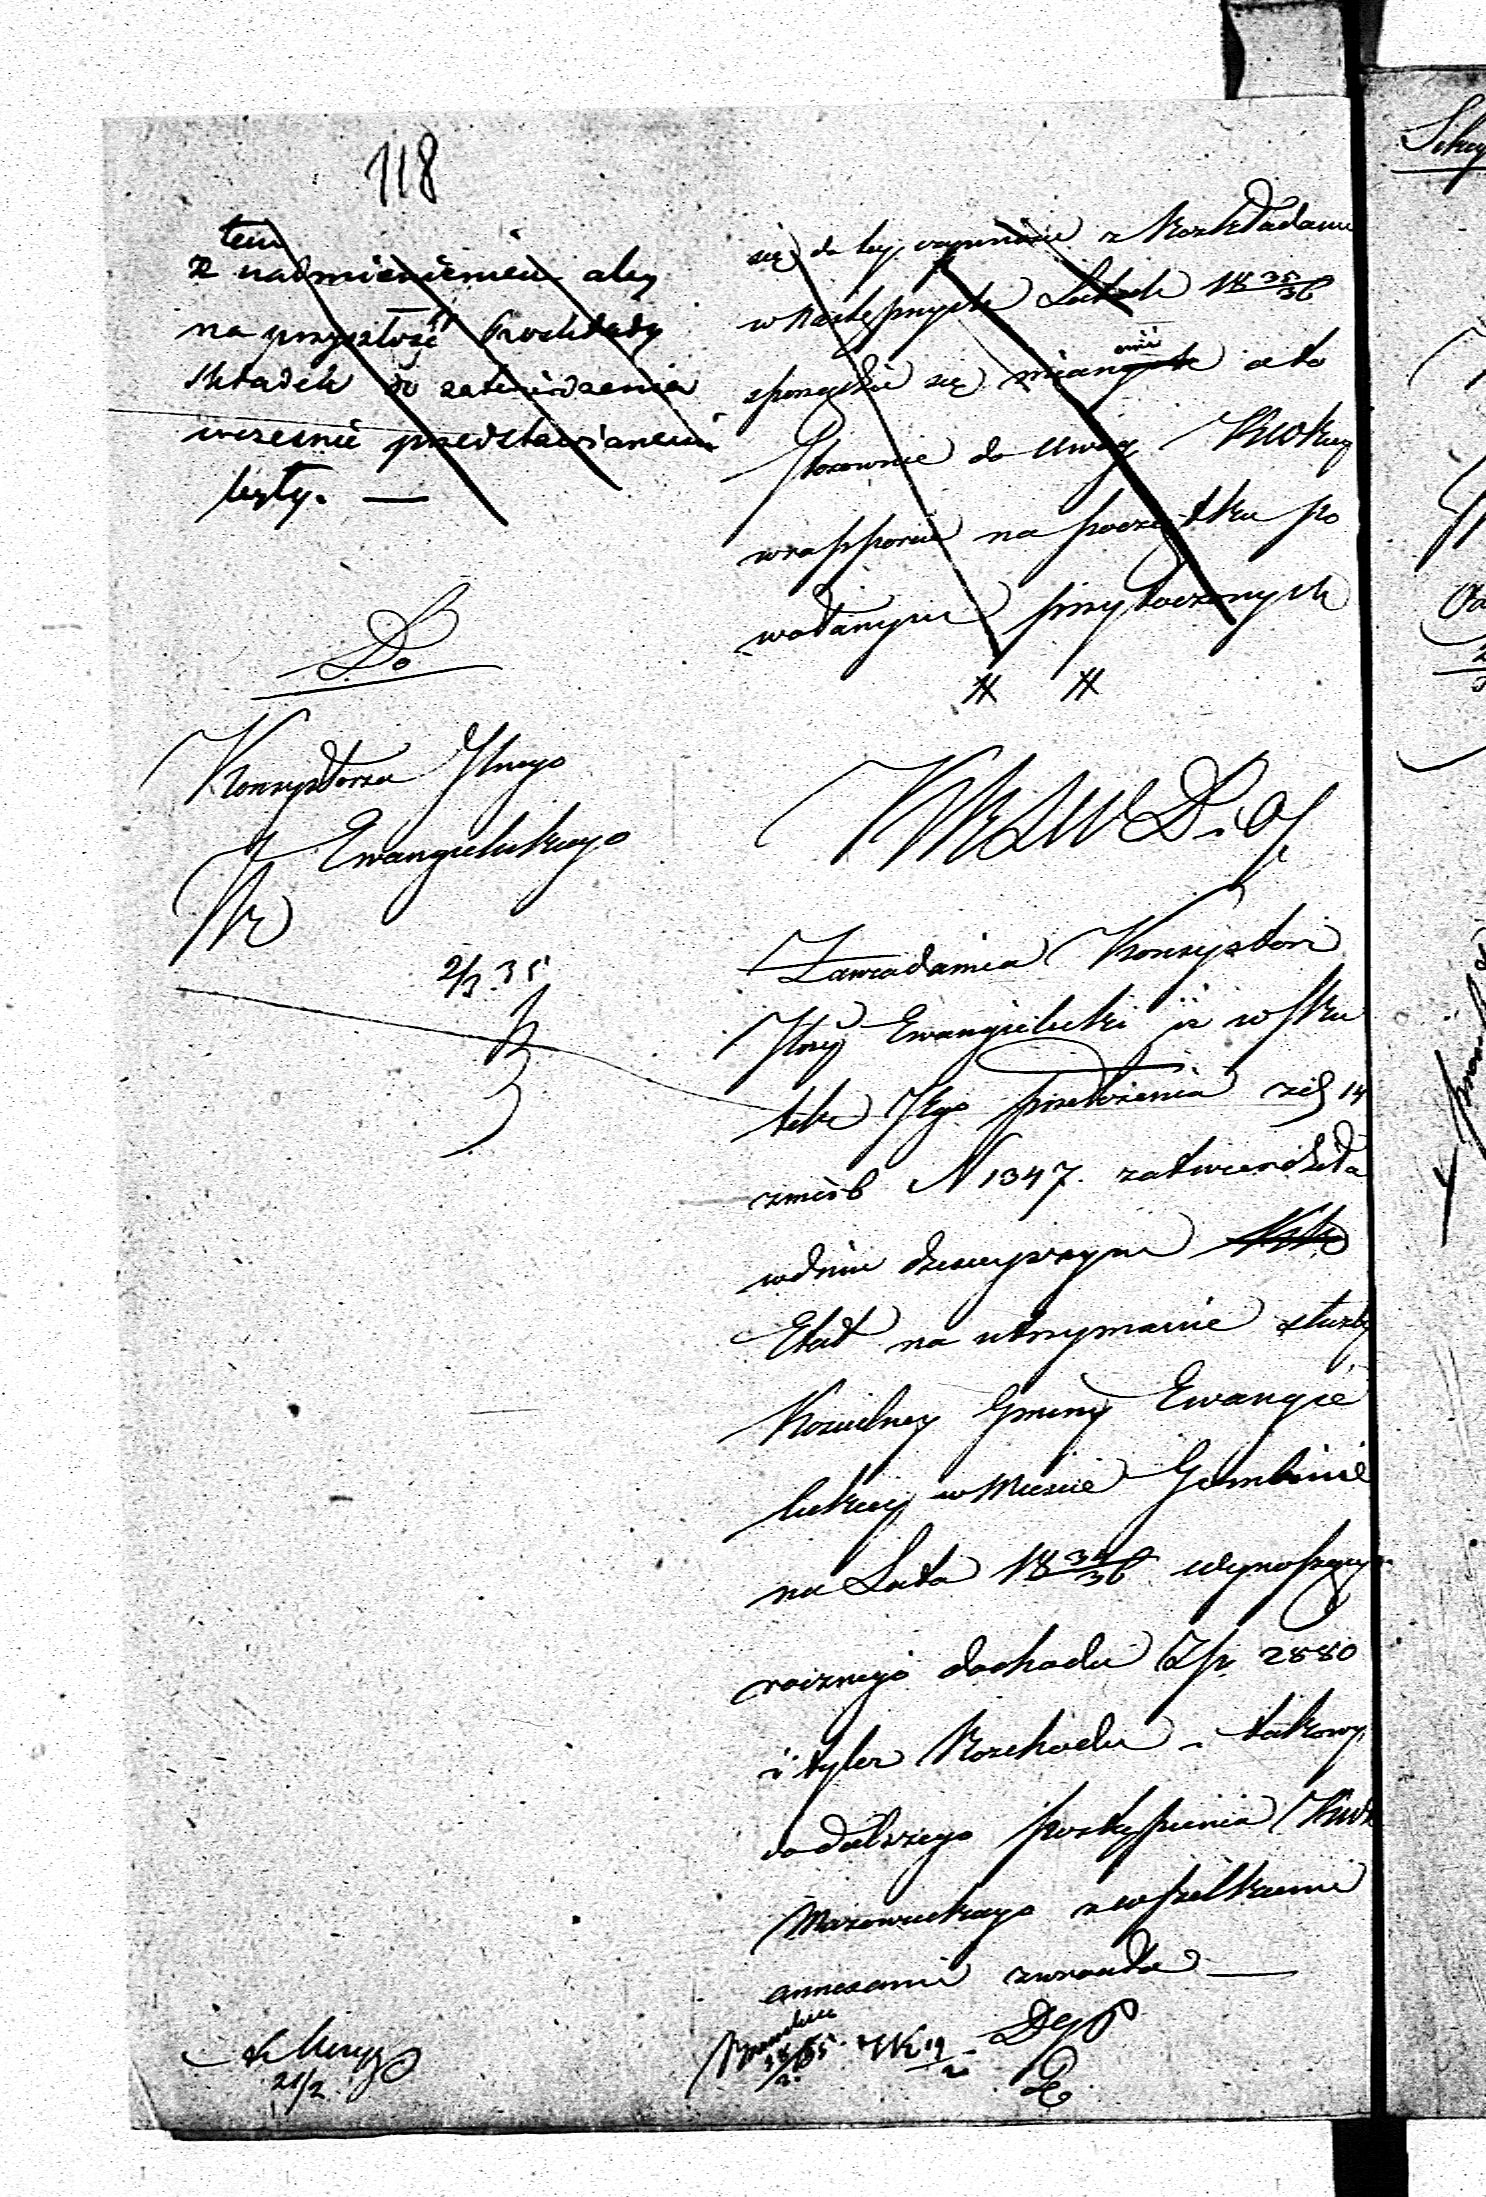 118
tem
z nadmienieniem aby
na przyszłość rozkłady
składek do zatwierdzenia
wcześnie przedstawianemi
były. —
Do
Konsystorza Jlnego
Ewangielickiego
2/3 35
21/2
się do tey z Rozkładami
w następnych Latach 18 35/36
się onii a to
Stosownie do uwag KWoku
w rapporcie na początku po
wołanym przytoczonych
KRSWD.iOP
Zawiadamia Konsystorz
Jlny Ewangielicki iż w sku
tek Jego przełożenia z d 14
zm i b N 1347. zatwierdziła
w dniu dzisieyszym
Etat na utrzymanie służby
Kościelney Gminy Ewangie
lickiey w Mieście Gombinie
na Lata 18 34/36 wynoszący
rocznego dochodu Zp 2880
i tyleż Rozchodu – takowy
do dalszego postąpienia KWdz
Mazowieckiego z wszelkiemi
annexami zwraca —